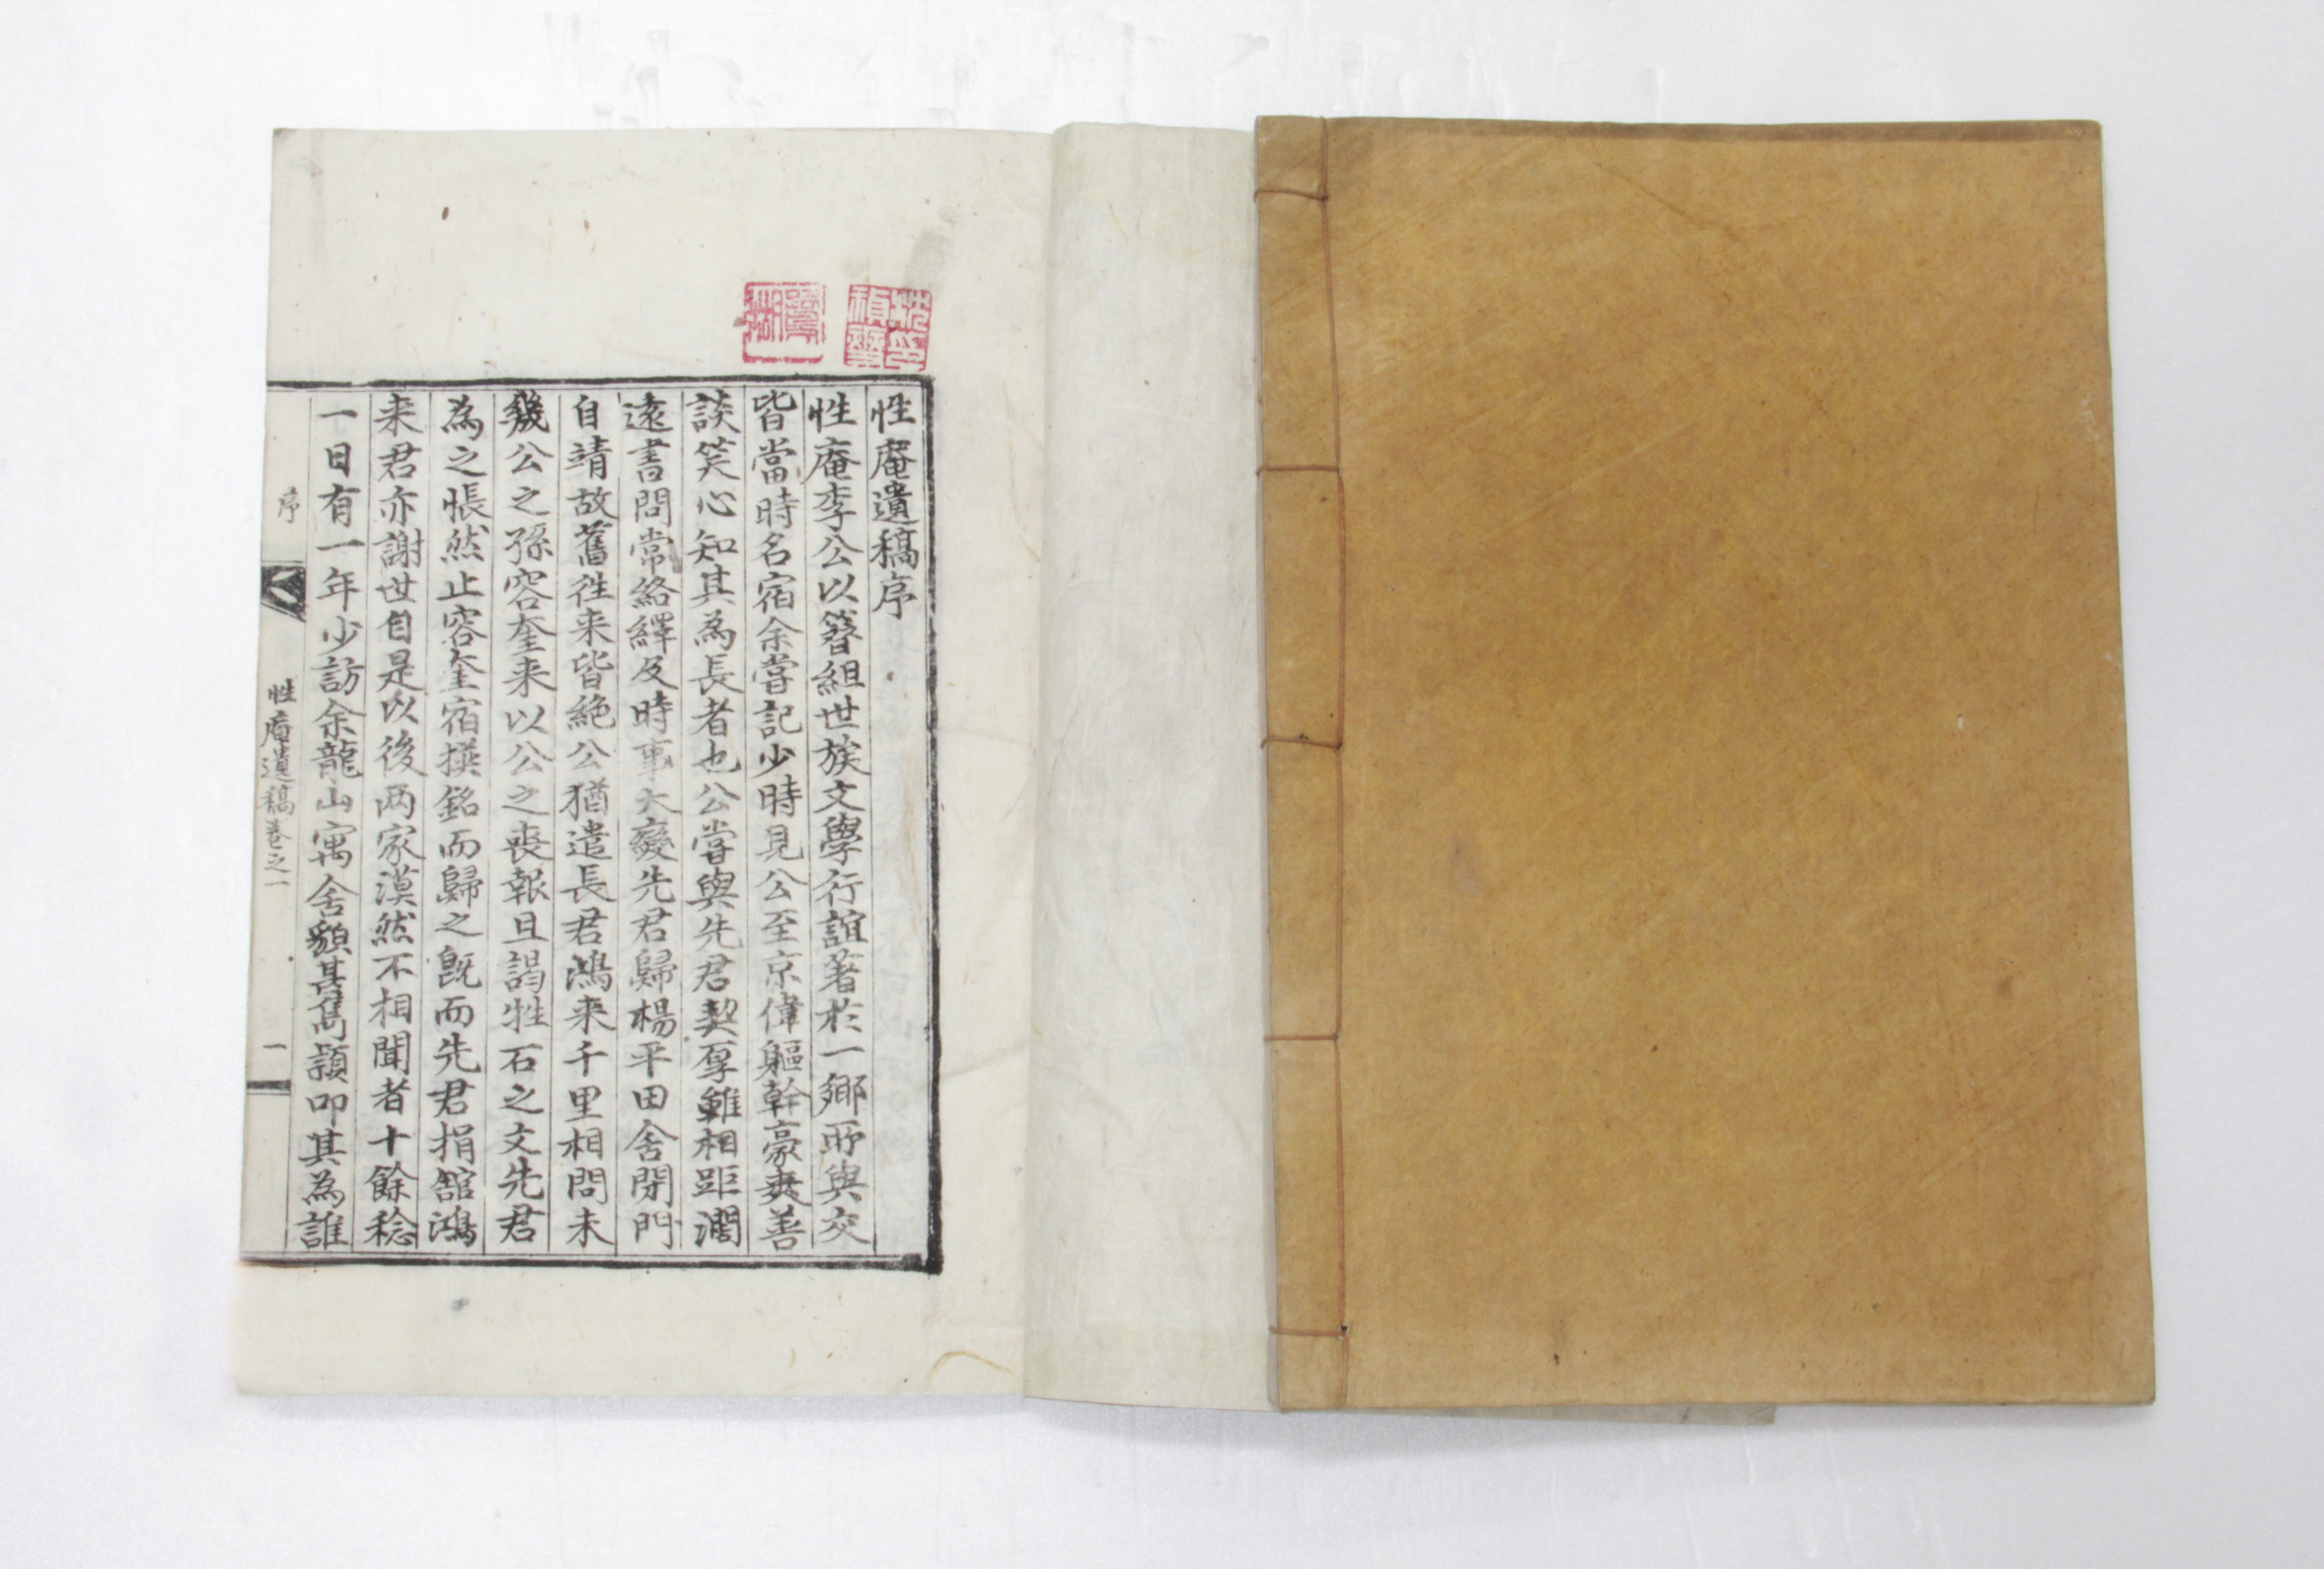 性庵遺稿序
性庵李公以簪組世族文學行誼著於一鄉所與交
皆當時名宿余嘗記少時見公至京偉軀幹豪爽善
談笑心知其為長者也公嘗與先君契厚雖相距濶
遠書問常絡繹及時事大變先君歸楊平田舍閉門
自靖故舊徃来皆絶公猶遣長君鴻来千里相問未
幾公之孫容奎来以公之喪報且謁牲石之文先君
為之悵然止容奎宿撰銘而歸之旣而先君捐舘鴻
来君亦謝世自是以後两家漠然不相聞者十餘稔
一日有一年少訪余龍山寓舍貌甚雋頴叩其為誰
序
性庵遺稿卷之一
一